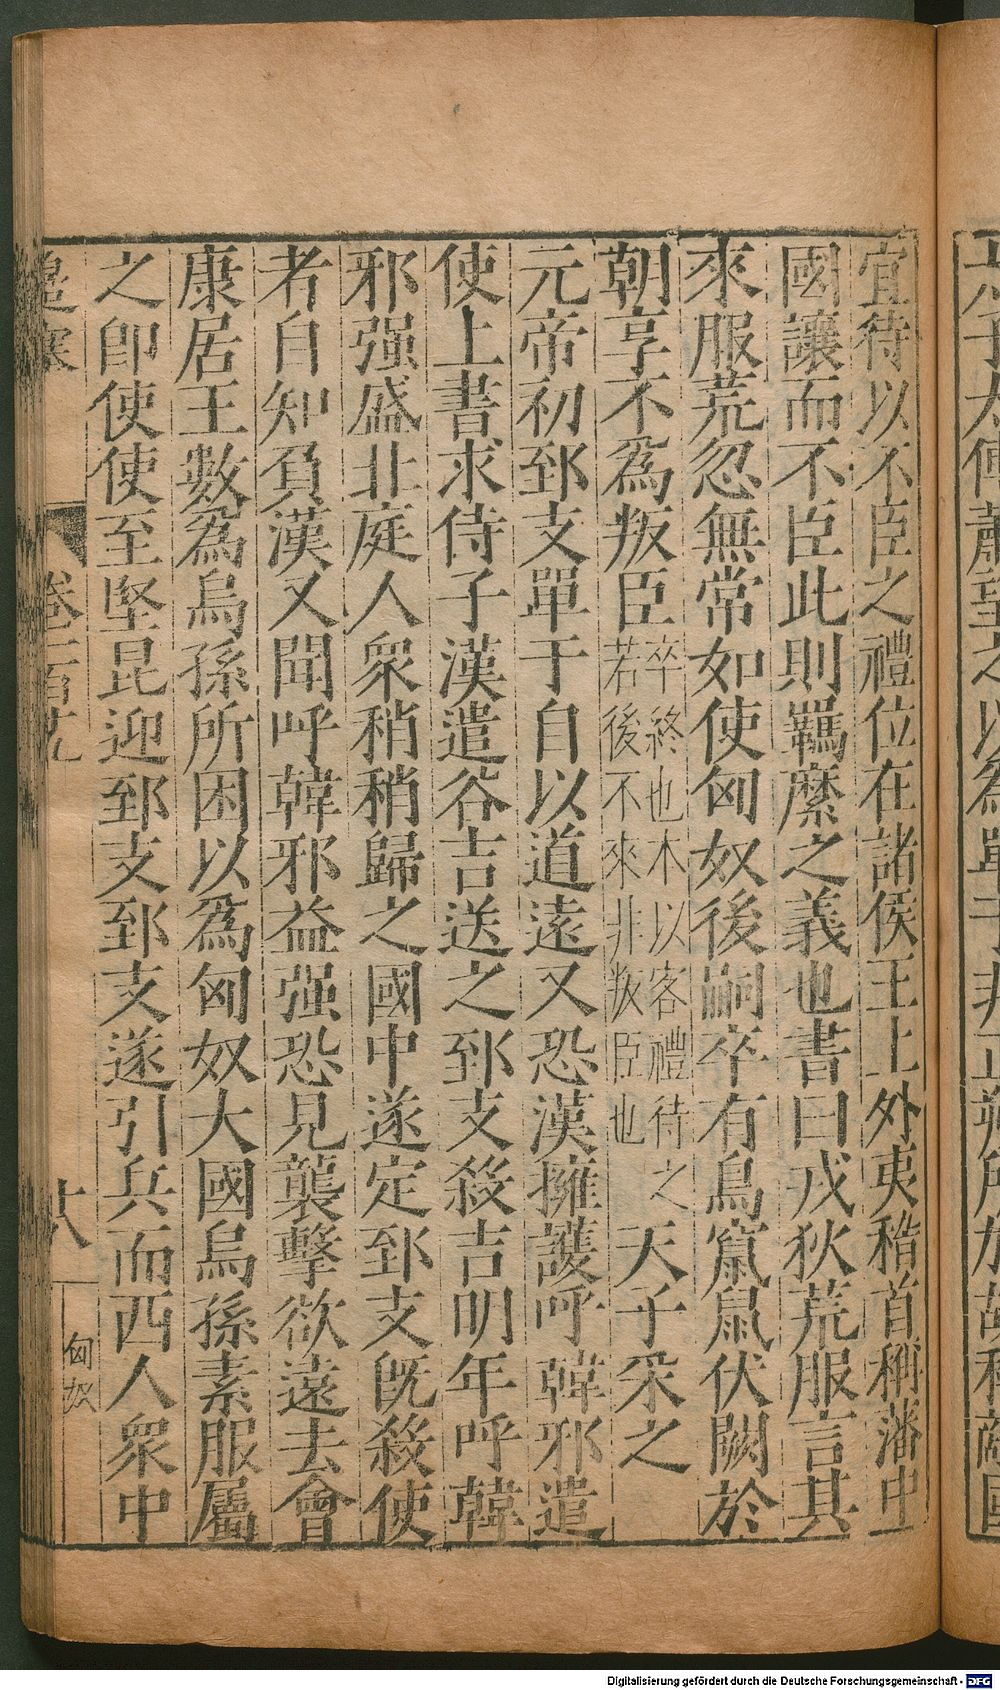 宜待以不臣之禮位在諸侯王上外夷稽首稱藩中
國讓而不臣此則羈縻之義也書曰戎狄荒服言其
來服荒忽無常如使匈奴後嗣卒有鳥竄鼠伏闕於
朝享不爲叛臣
卒終也木以客禮待之
若後不來非叛臣也
天子采之
元帝初郅支單于自以道遠又恐漢擁護呼韓邪遣
使上書求侍子漢遣谷吉送之郅支殺吉明年呼韓
邪强盛北庭人衆稍稍歸之國中遂定郅支既殺使
者自知負漢又聞呼韓邪益强恐見襲擊欲遠去會
康居王數爲烏孫所困以爲匈奴大國烏孫素服屬
之卽使使至堅昆迎郅支郅支遂引兵而西人衆中
邊塞
卷一百九
十八
匈奴
Digitalisierung gefördert durch die Deutsche Forschungsgemeinschaft - DFG